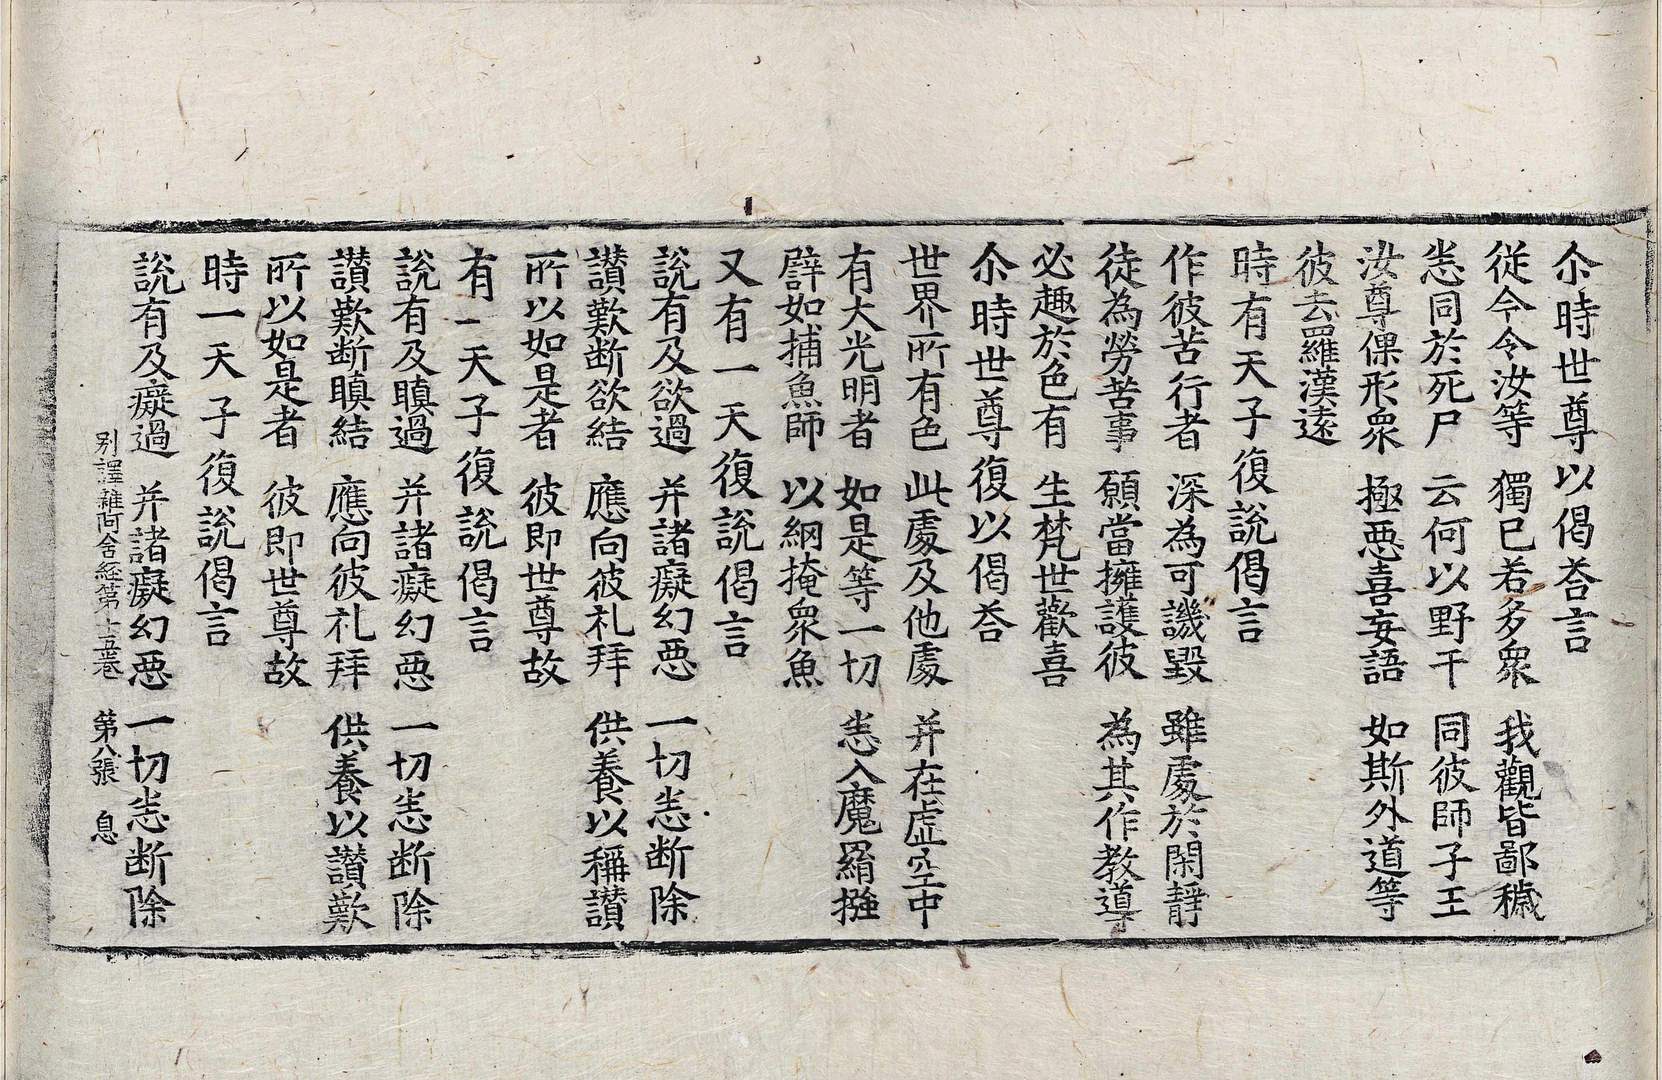 尒時世尊以偈荅言
従今令汝等　獨已若多衆　我觀皆鄙穢
恙同於死尸　云何以野干　同彼師子王
汝尊倮形衆　極惡喜妄語　如斯外道等
彼去羅漢遠
時有天子復說偈言
作彼苦行者　深為可譏毀　雖處於閑靜
徒為勞苦事　願當擁護彼　為其作教導
必趣於色有　生梵世歡喜
尒時世尊復以偈荅
世界所有色　此處及他處　并在虛空中
有大光明者　如是等一切　悉入魔羂㩲
譬如捕魚師　以網掩衆魚
又有一天復說偈言
說有及欲過　并諸癡幻惡　一切悉断除
讃歎断欲結　應向彼礼拜　供養以稱讃
所以如是者　彼即世尊故
有一天子復說偈言
說有及瞋過　并諸癡幻惡　一切悉断除
讃歎断瞋結　應向彼礼拜　供養以讃歎
所以如是者　彼即世尊故
時一天子復說偈言
說有及癡過　并諸癡幻惡　一切悉断除
别譯雜阿含経第十五巻　第八張　息